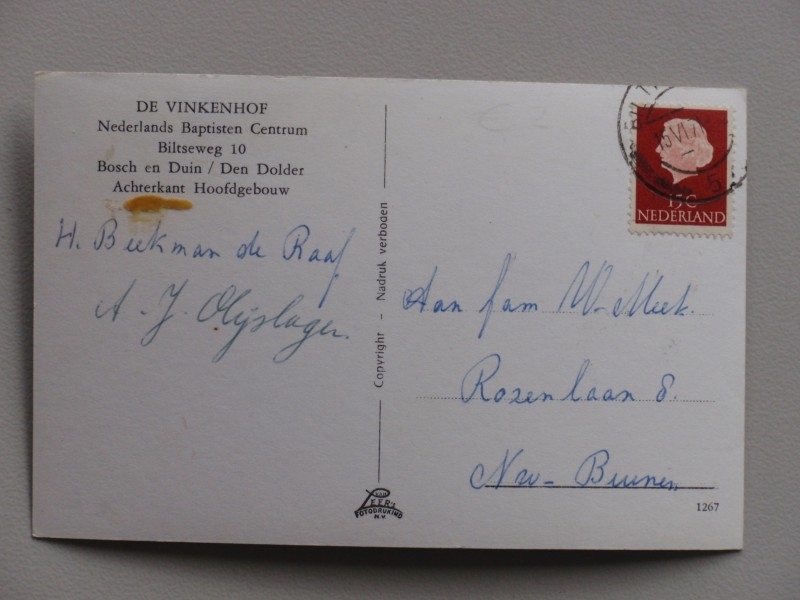 DE VINKENHOF
Nederlands Baptisten Centrum
Biltseweg 10
Bosch en Duin / Den Dolder
Achterkant Hoofdgebouw
H. Beekman de Raaf
A. J. Olijslager.
Copyright - Nadruk verboden
15 VI 7
5
15 C
NEDERLAND
Aan fam W. Meek.
Rozenlaan 8.
Nw- Buinen
FOTODRUKIND
N.V.
1267